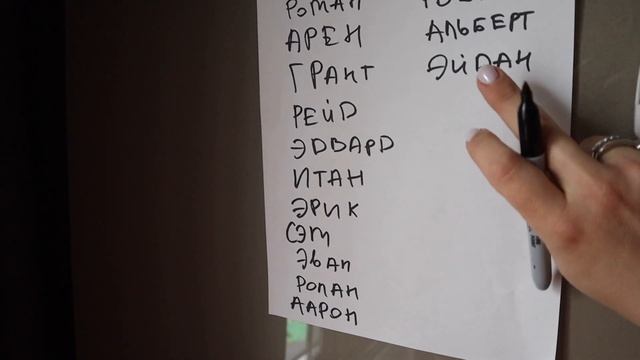 РОМАН
АРЕН
ГРАНТ
РЕЙД
ЭДВАРД
ИТАН
ЭРИК
СЭТ
ЭВАН
РОЛАН
ААРОН
АЛЬБЕРТ
ЭЙДАН